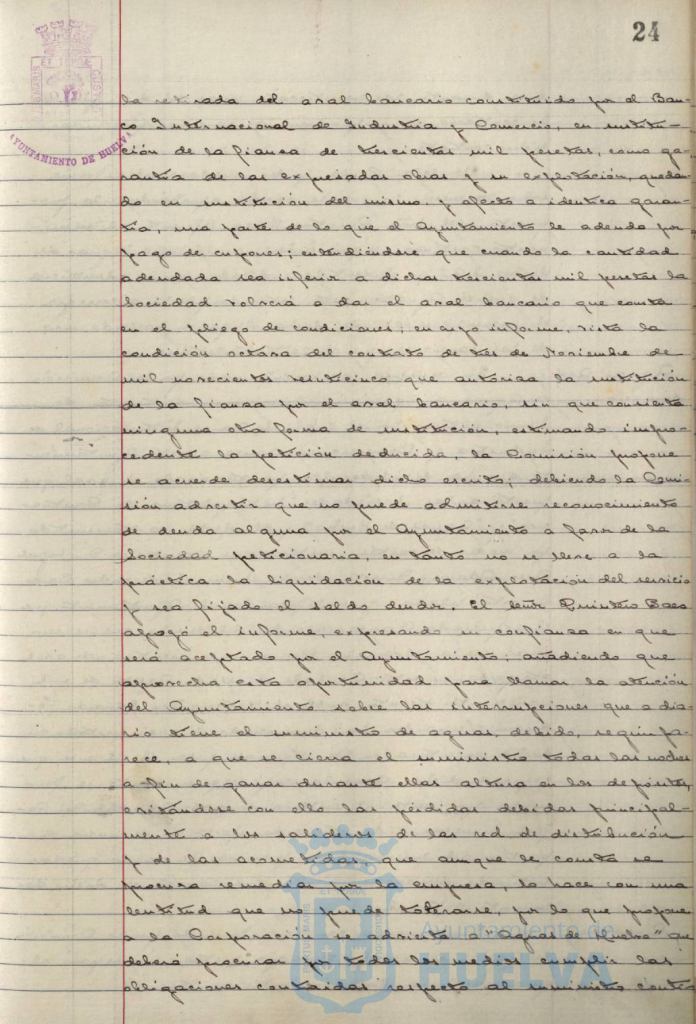 24
AYUNTAMIENTO DE HUELVA
la retirada del aval bancario constituido por el Ban-
co Internacional de Industria y Comercio, en sustitu-
ción de la fianza de trescientas mil pesetas, como ga-
rantia de las expresadas obras y su explotación, quedan-
do en sustitución del mismo y afecto a identica garan-
tia, una parte de lo que el Ayuntamiento le adenda por
pago de cupones; entendiéndose que cuando la cantidad
adendada sea inferir a dichas trescientas mil pesetas la
Sociedad volverá a dar el aval bancario que consta
en el pliego de condiciones; en cuyo informe, vista la
condición octava del contrato de tres de Noviembre de
mil novecientos veinticinco que autoriza la sustitución
de la fianza por el aval bancario, sin que consienta
ninguna otra forma de sustitución, estimando impro-
cedente la petición deducida, la Comisión propone
se acuerde desestimar dicho escrito; debiendo la Comi-
sión advertir que no puede admitirse reconocimiento
de deuda alguna por el Ayuntamiento a favor de la
Sociedad peticionaria, en tanto no se lleve a la
práctica la liquidación de la explotación del servicio
y sea fijado el saldo deudor. El señor Quintero Baez
apoyó el informe, expresando su confianza en que
será aceptado por el Ayuntamiento; añadiendo que
aprovecha esta oportunidad para llamar la atención
del Ayuntamiento sobre las interrupciones que a dia-
rio tiene el suministro de aguas, debido, según pa-
rece, a que se cierra el suministro todas las noches
a fin de ganar durante ellas altura en los depósitos,
evitándose con ello las pérdidas debidas principal-
mente a los salideros de las red de distribución
y de las acometidas, que aunque le consta se
procura remediar por la empresa, lo hace con una
lentitud que no puede tolerarse, por lo que propone
a la Corporación se advierta a "Aguas de Huelva" que
deberá procurar por todos los medios cumplir las
obligaciones contraidas respecto al suministro contra
Ayuntamiento de
HUELVA